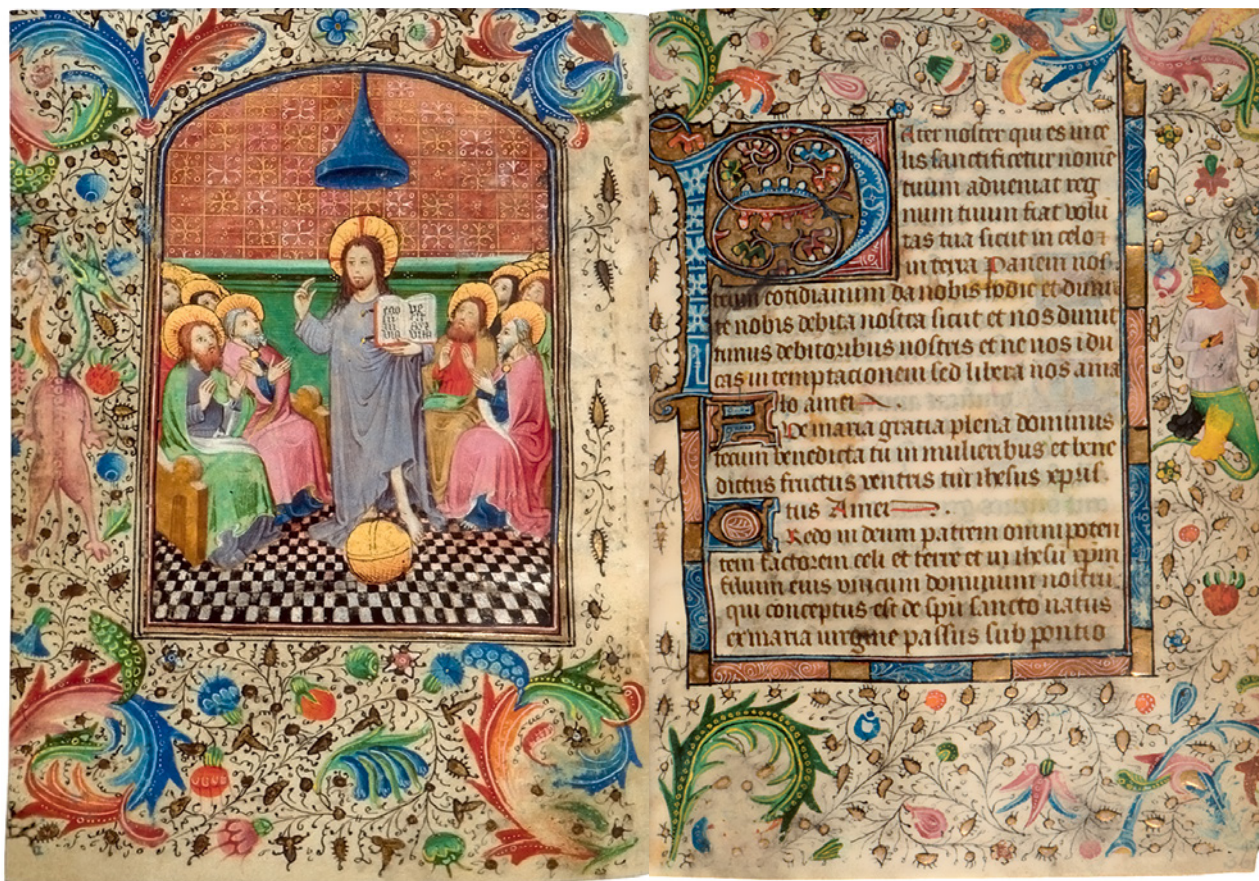 Pater noster qui es in ce
lis sanctificetur nome
tuum adveniat reg
num tuum fiat volu
tas tua sicut in celo
in terra Panem nos
trum cotidianum da nobis hodie et dimi
te nobis debita nostra sicut et nos dimit
timus debitoribus nostris et ne nos i du
cas in temptacionem sed libera nos a ma
lo amen
Ave maria gracia plena dominus
tecum benedicta tu in mulieribus et bene
dictus fructus ventris tui ihesus xpris.
tus Amen
Credo in deum patrem omnipoten
tem factorem celi et terre et in ihesu xpm
filium eius vnicum dominum nostru
qui conceptus est de spu sancto natus
ex maria virgine passus sub pontio